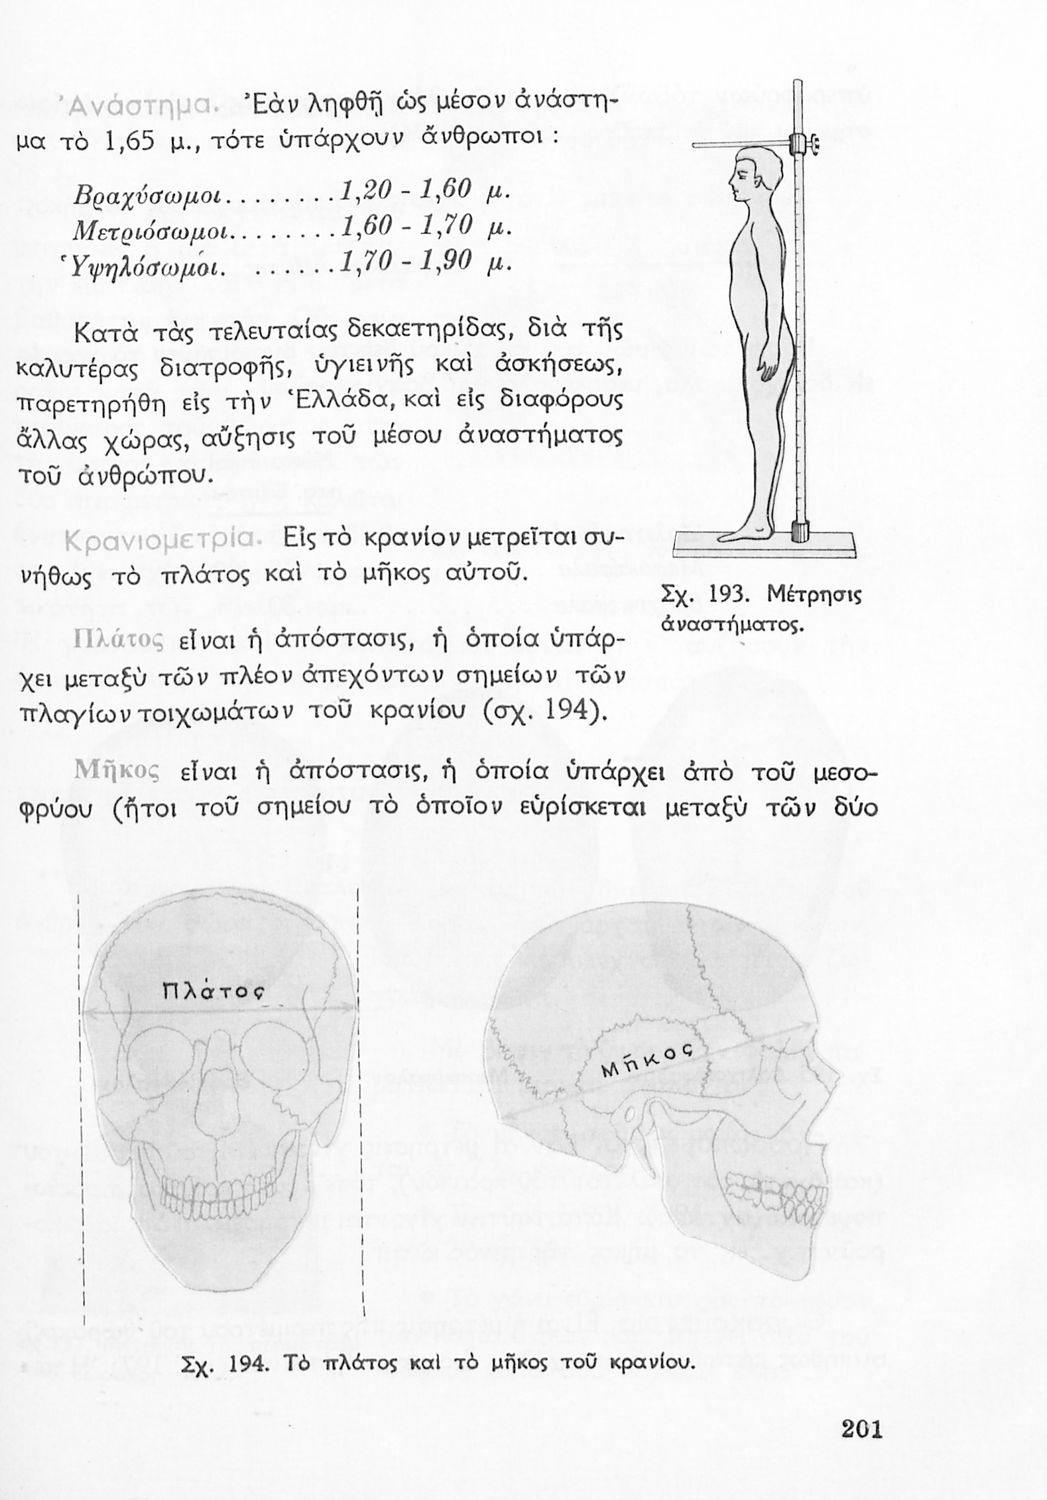 Ἀνάστημα. Ἐὰν ληφθῇ ὡς μέσον ἀνάστη-
μα τὸ 1,65 μ., τότε ὑπάρχουν ἄνθρωποι :
Βραχύσωμοι.........1,20 - 1,60 μ.
Μετριόσωμοι.........1,60 - 1,70 μ.
Ὑψηλόσωμοι. .......1,70 - 1,90 μ.
Κατὰ τὰς τελευταίας δεκαετηρίδας, διὰ τῆς
καλυτέρας διατροφῆς, ὑγιεινῆς καὶ ἀσκήσεως,
παρετηρήθη εἰς τὴν Ἑλλάδα, καὶ εἰς διαφόρους
ἄλλας χώρας, αὔξησις τοῦ μέσου ἀναστήματος
τοῦ ἀνθρώπου.
Κρανιομετρία. Εἰς τὸ κρανίον μετρεῖται συ-
νήθως τὸ πλάτος καὶ τὸ μῆκος αὐτοῦ.
Σχ. 193. Μέτρησις
ἀναστήματος.
Πλάτος εἶναι ἡ ἀπόστασις, ἡ ὁποία ὑπάρ-
χει μεταξὺ τῶν πλέον ἀπεχόντων σημείων τῶν
πλαγίων τοιχωμάτων τοῦ κρανίου (σχ. 194).
Μῆκος εἶναι ἡ ἀπόστασις, ἡ ὁποία ὑπάρχει ἀπὸ τοῦ μεσο-
φρύου (ἤτοι τοῦ σημείου τὸ ὁποῖον εὑρίσκεται μεταξὺ τῶν δύο
Πλάτος
Μῆκος
Σχ. 194. Τὸ πλάτος καὶ τὸ μῆκος τοῦ κρανίου.
201